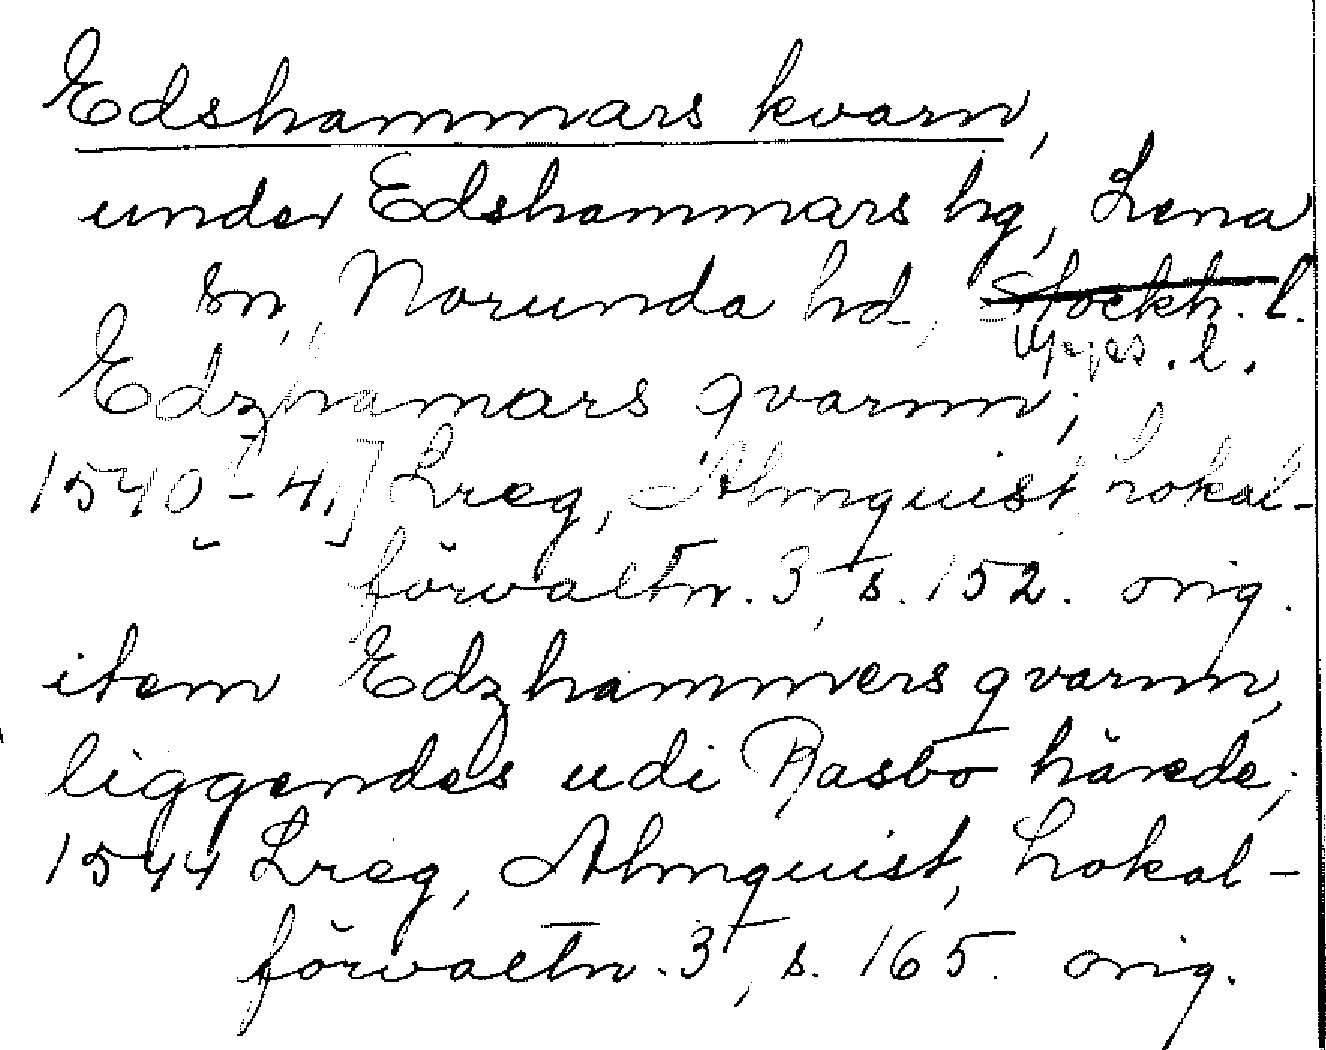 Edshammars kvarn,
under Edshammars hg, Lena
sn, Norunda hd, Stockh. l.
Upps. l.
Edzhamars qvarnn;
1540[-41] Lreg, Almquist, Lokal-
förvaltn. 3, s. 152. orig.
item Edzhammers qvarnn,
liggendes udi Rasbo härede;
1544 Lreg, Almquist, Lokal-
förvaltn. 3, s. 165. orig.